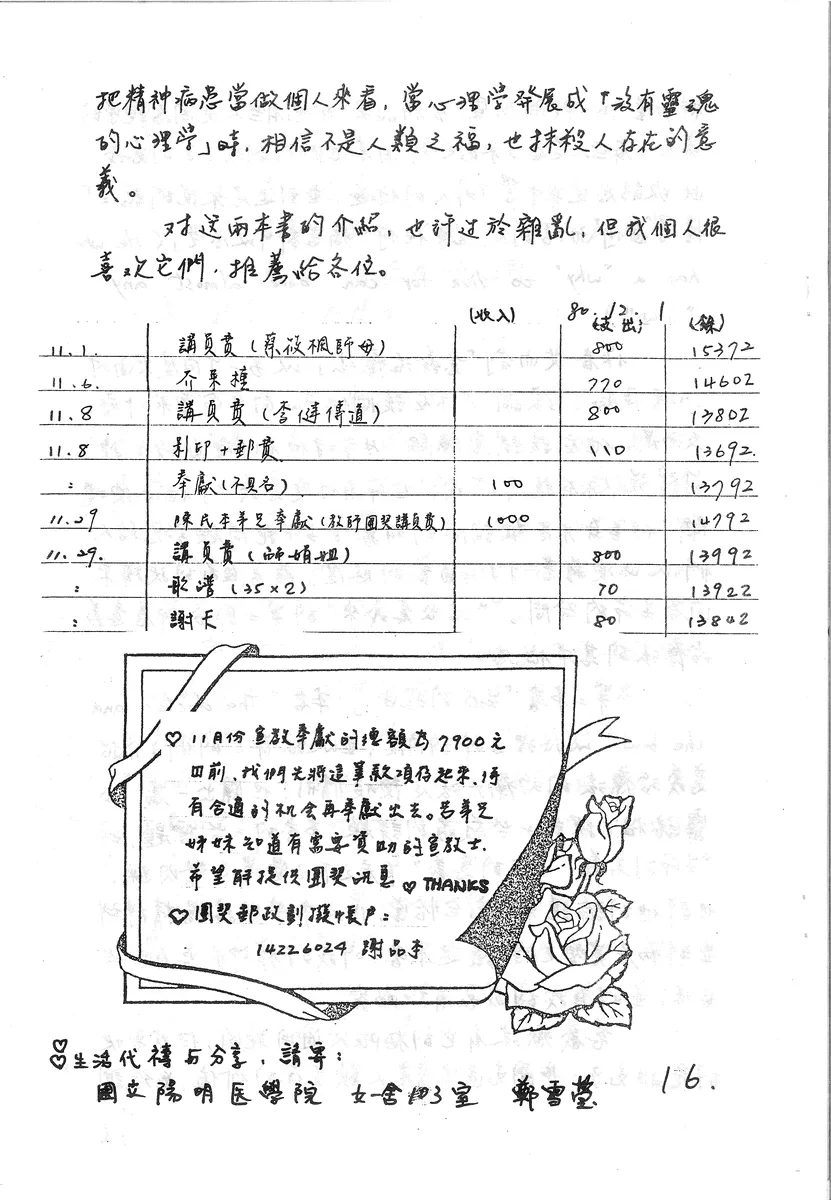 把精神病患當做個人來看，當心理學發展成「沒有靈魂
的心理學」時，相信不是人類之福，也抹殺人存在的意
義。
对这兩本書的介紹，也許过於雜亂，但我個人很
喜欢它們，推薦給各位。
80.12.1
(收入) (支出) (餘)
11.1. 講員費(蔡筱楓師母) 800 15372
11.6. 770 14602
11.8 講員費(李健傳道) 800 13802
11.8 影印+郵費 110 13692.
: 奉獻(不具名) 100 13792
11.29 陳氏李弟兄奉獻(教師團契講員費) 1000 14792
11.29. 講員費(娟姐) 800 13992
: 歌譜(35×2) 70 13922
: 謝天 80 13842
♡ 11月份宣教奉獻的總額為7900元
目前，我們先將這筆款項存起來，待
有合適的机会再奉獻出去。若弟兄
姊妹知道有需要資助的宣教士，
希望能提供團契訊息 ♡ THANKS
♡ 團契郵政劃撥帳户：
14226024 謝品李
♡生活代禱与分享，請寄：
國立陽明医學院 女舍 室 鄭雪瑩
16.